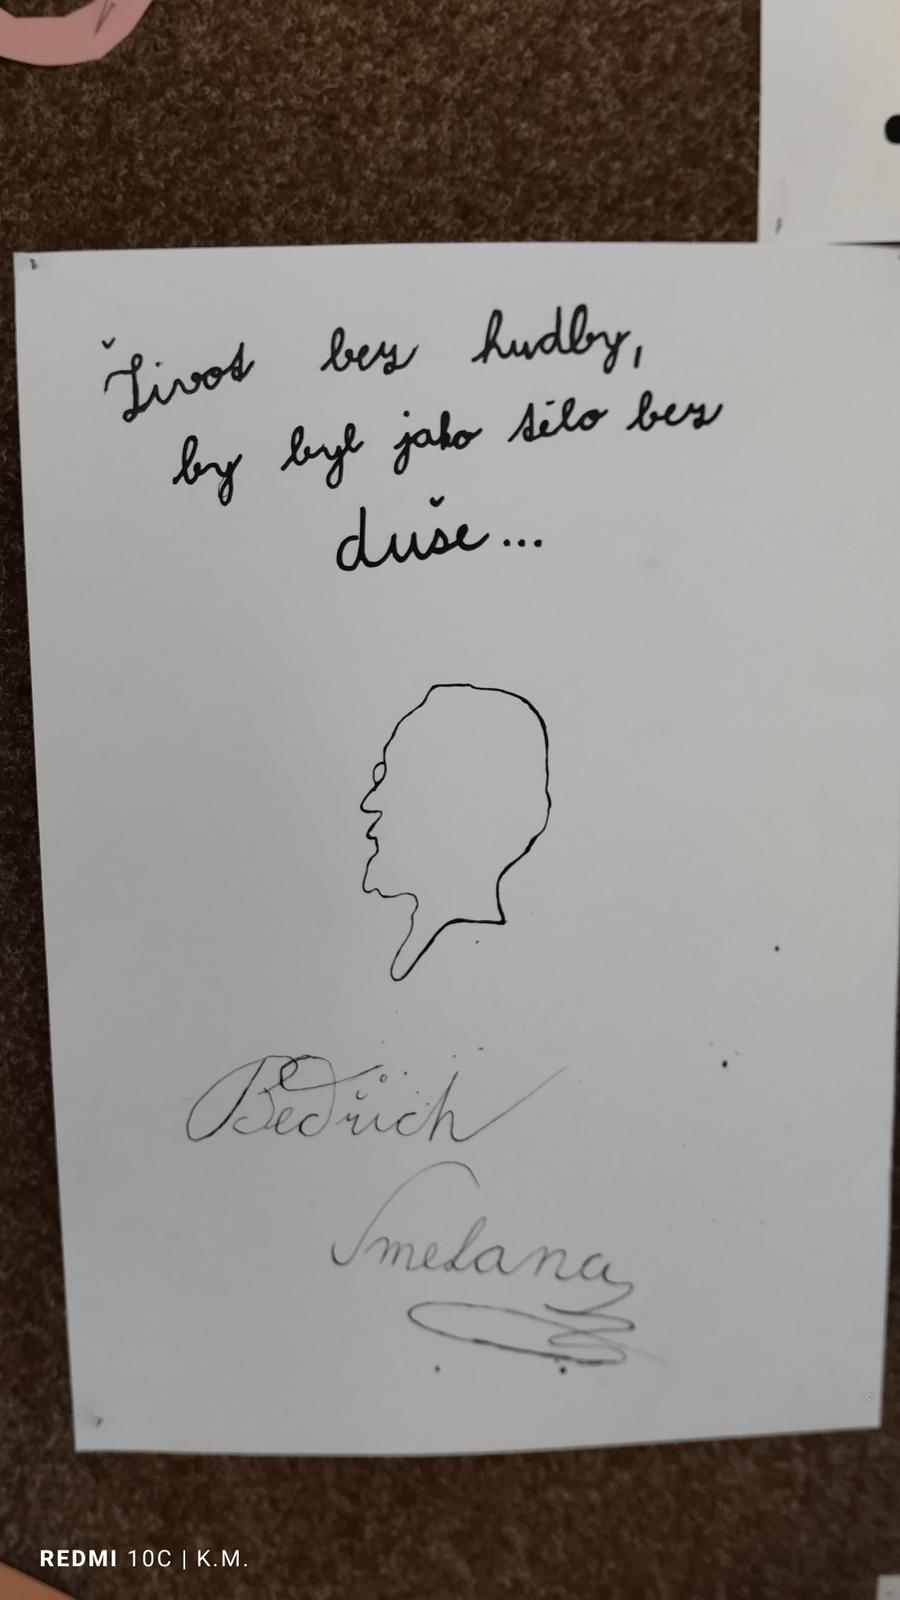 Život bez hudby,
by byl jako tělo bez
duše...
Bedřich
Smetana
REDMI 10C | K.M.